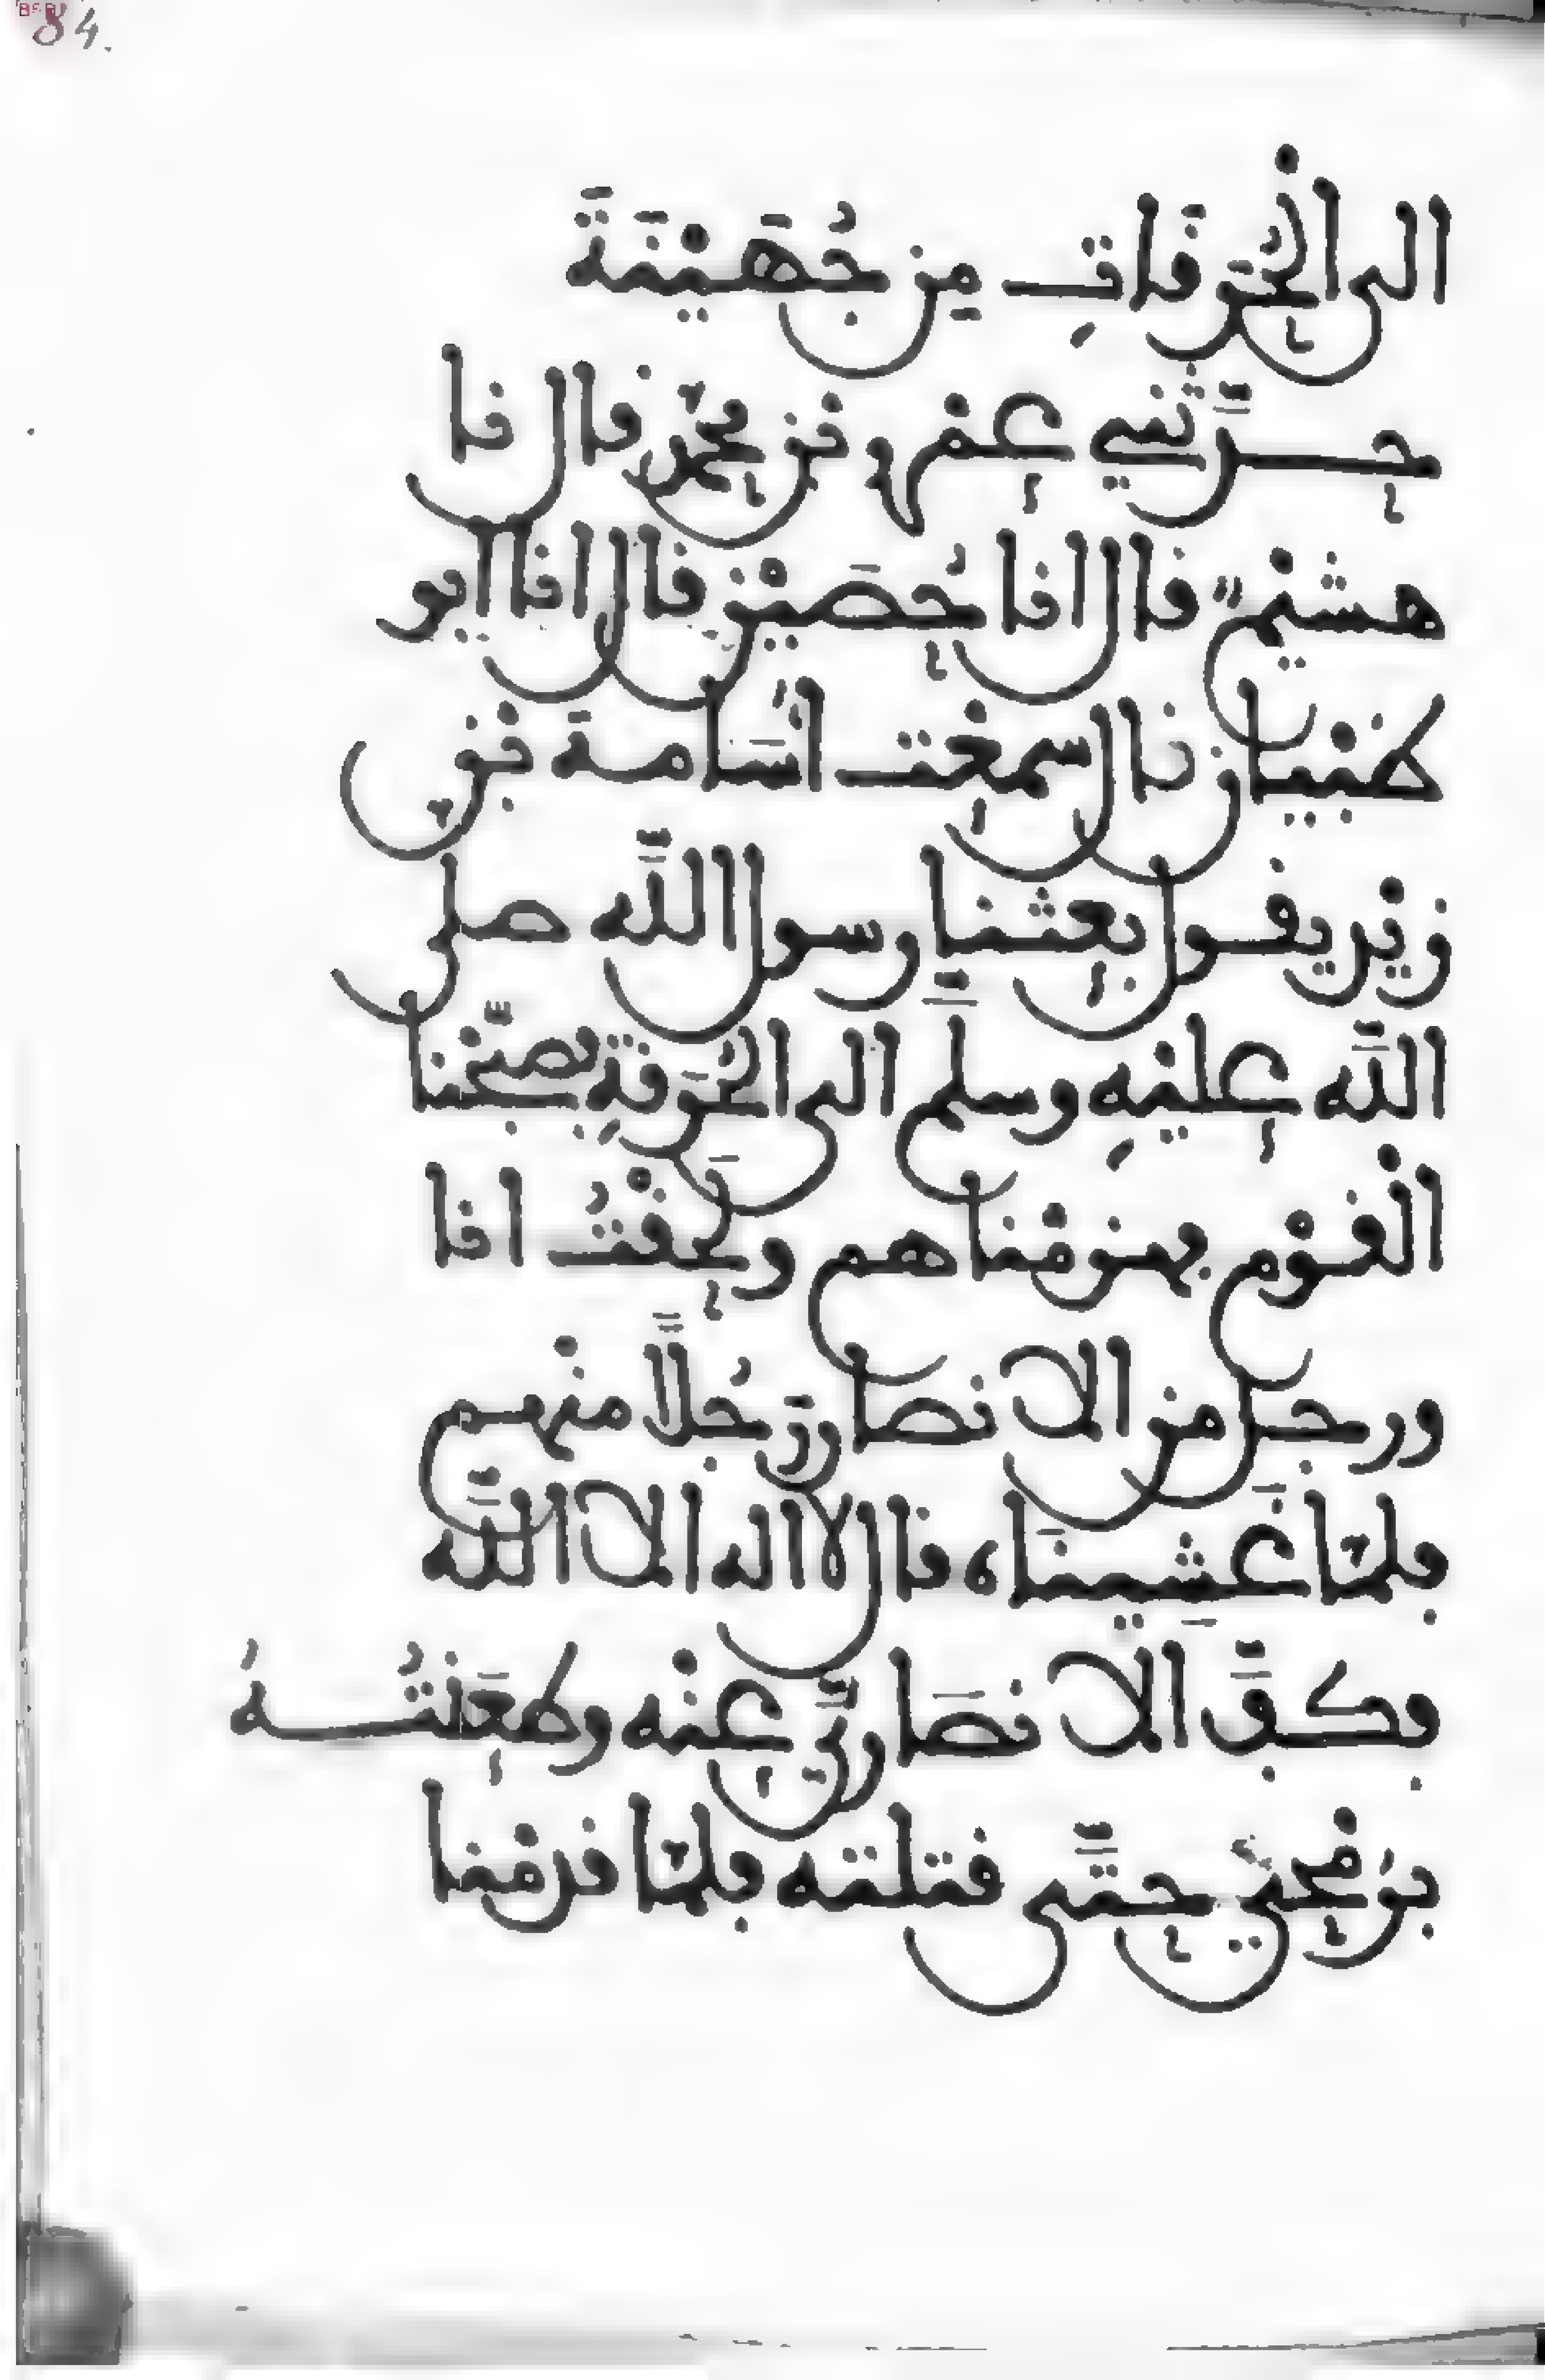 84.
الى الْحُرَقَاتِ مِن جُهَيْنَةَ
حدَّثَنِي عَمْرُو بْن محمَّد قال نا
هشيْم قال انا حُصَيْن قال انا ابو
ظبْيان قال سمعْت اُسَامةَ بْن
زيْد يقول بعثنا رسول اللَّه صلى
اللَّه عليْهِ وسلَّم الى الْحُرَقةِ فصبّحْنا
الْقوْم فهزمْناهم ولَحِقْتُ انا
ورجل من الانصار رَجُلًا منْهم
فلمّا غَشِينَاه قال لا اله الا اللَّه
فكفَّ الانصَاريّ عنْه وطعَنْتُهُ
برُمْحِي حتَّى قتلته فلمّا قدمْنا